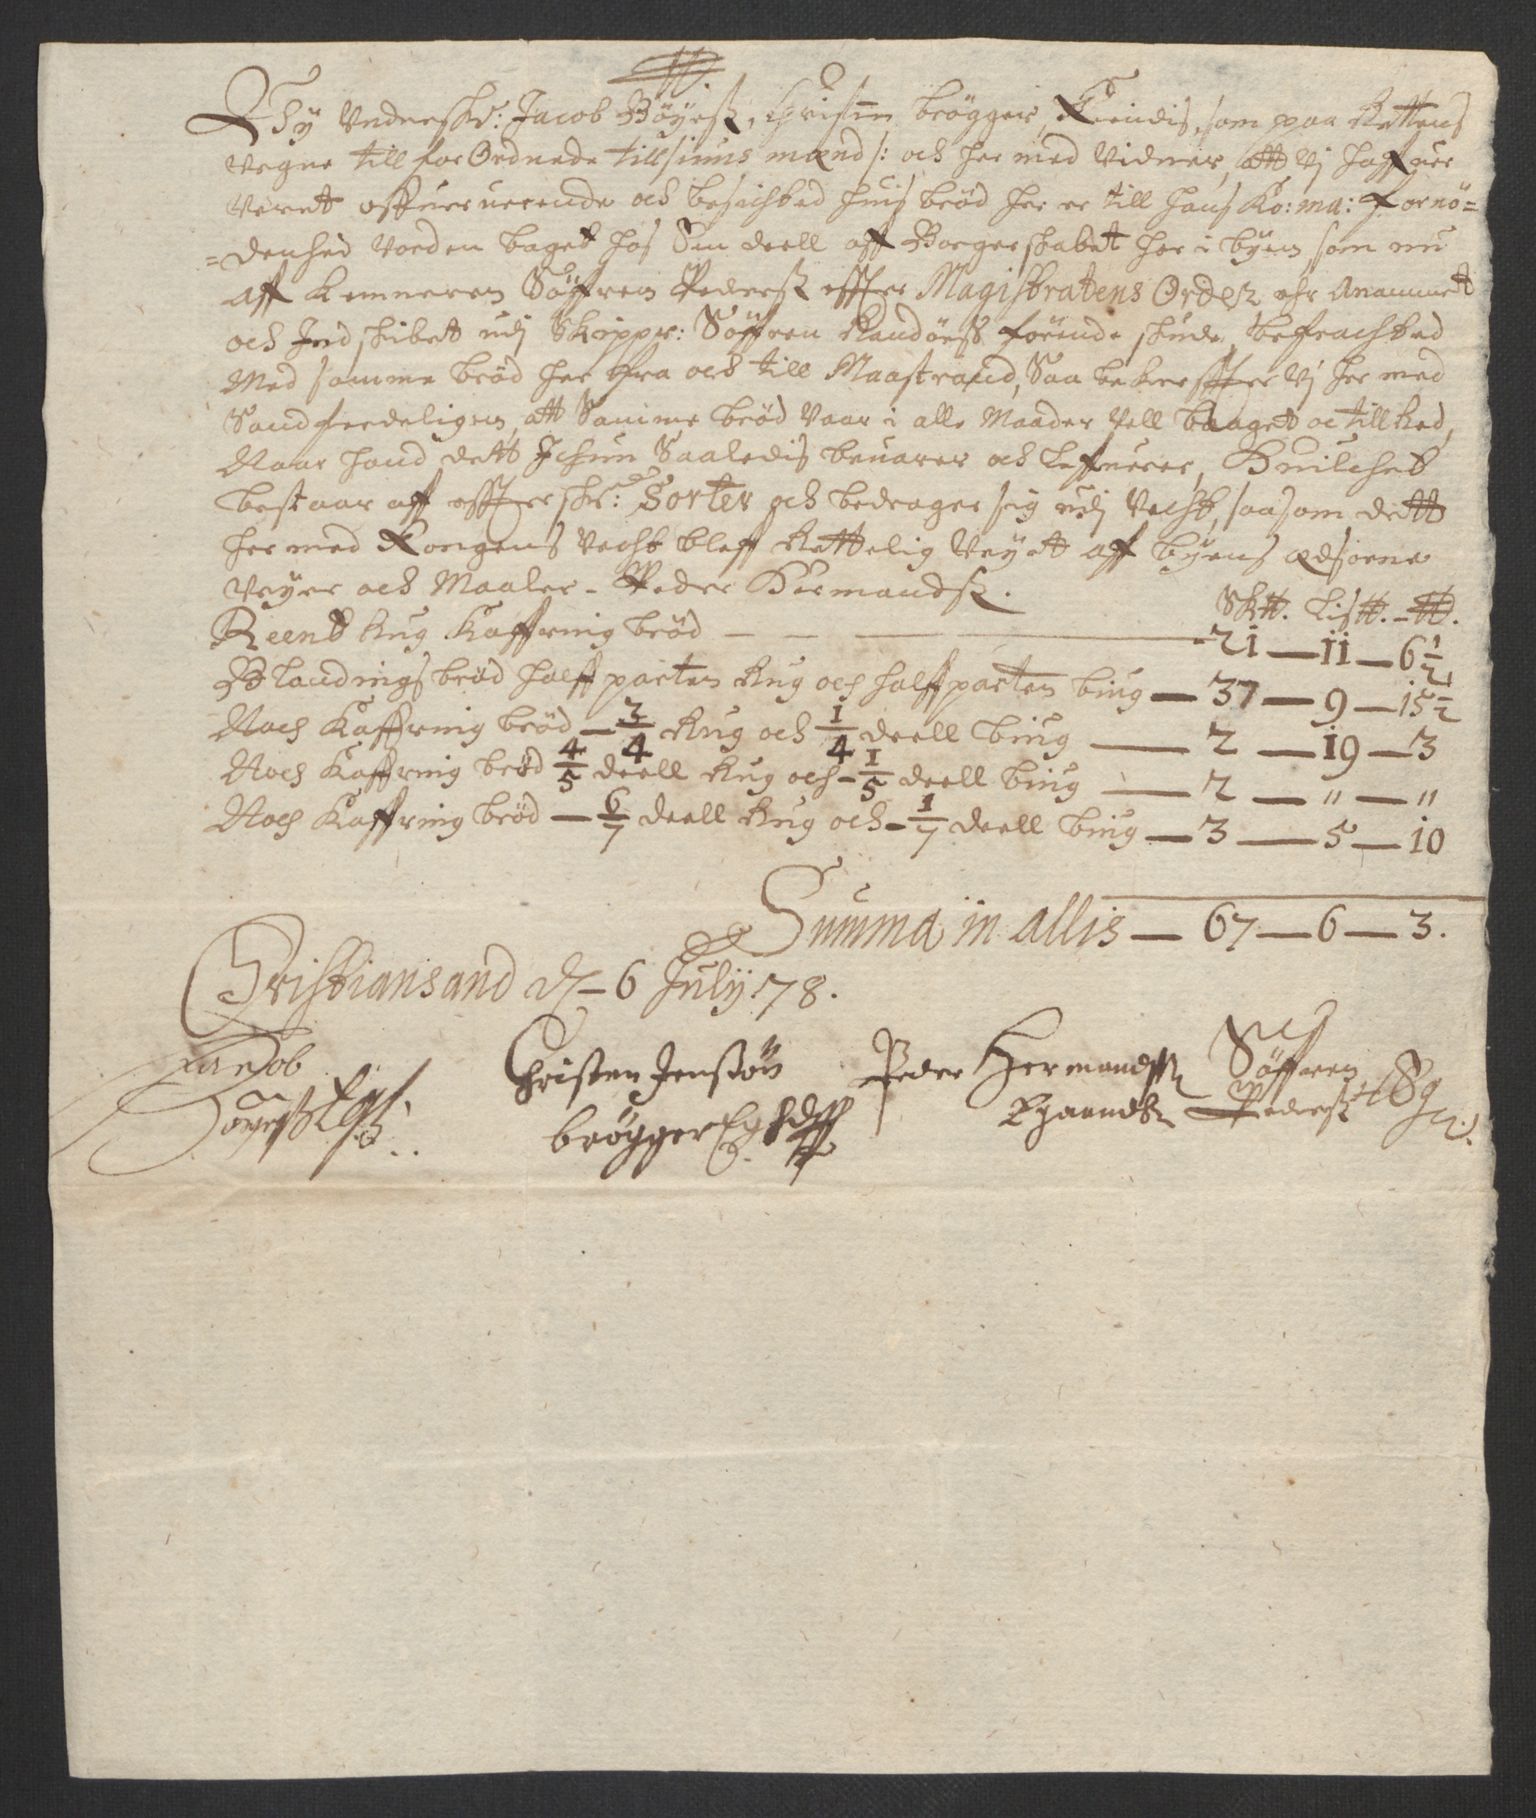 Vy Underskr: Jacob Böyesz, Christen brögger, Kiendis, som paa Rettens
Vegne till for Ordnede tillsiuns mænd /: och her med Vidner, att Vj haffuer
Veret offueruerende och besichted huis brød her er till hans Ko: ma: fornö=
=denhed Vorden baget hos Een deell aff Borgerskabet her i byen som nu
aff Kemneren Söffren Pedersz effter Magistratens Order ehr Anammet
och Ind skibet udj Skipper: Söffren Randersz förende skude, befrachted
Med samme brød her fra och till Maastrand, Saa bekreffter Vj her med
Sandferdeligen, att Samme brød Vaar i alle Maader Vell baaget oc till Red,
Naar hand dett Ichun Saaledis beuarer och Leffuerer, Huilchet
bestaar aff effterskr: Sorter och bedrager sig udj Vecht, saasom dett
her med Kongens Vecht bleff Rettelig Veyet aff byens edsorne
Veyer och Maaler - Peder Hermandsz.
Sk℔. Lis℔. - ℔.
Reent Rug Kaffring brød — 21 — 11 — 6 1/2
Blandings brød halffparten Rug och halffparten biug — 37 — 9 — 15 1/2
Noch Kaffring brød — 3/4 Rug och 1/4 deell biug — 2 — 19 — 3
Noch Kaffring brød 4/5 deell Rug och - 1/5 deell biug — 2 — " — "
Noch Kaffring brød — 6/7 deell Rug och - 1/7 deell biug — 3 — 5 — 10
Summa in allis — 67 — 6 — 3.
Christiansand d - 6 Julij 78.
Jacob Christen Jensön Peder Hermandsz Söffren
Böyesz brögger Egenhandsz Pedersz